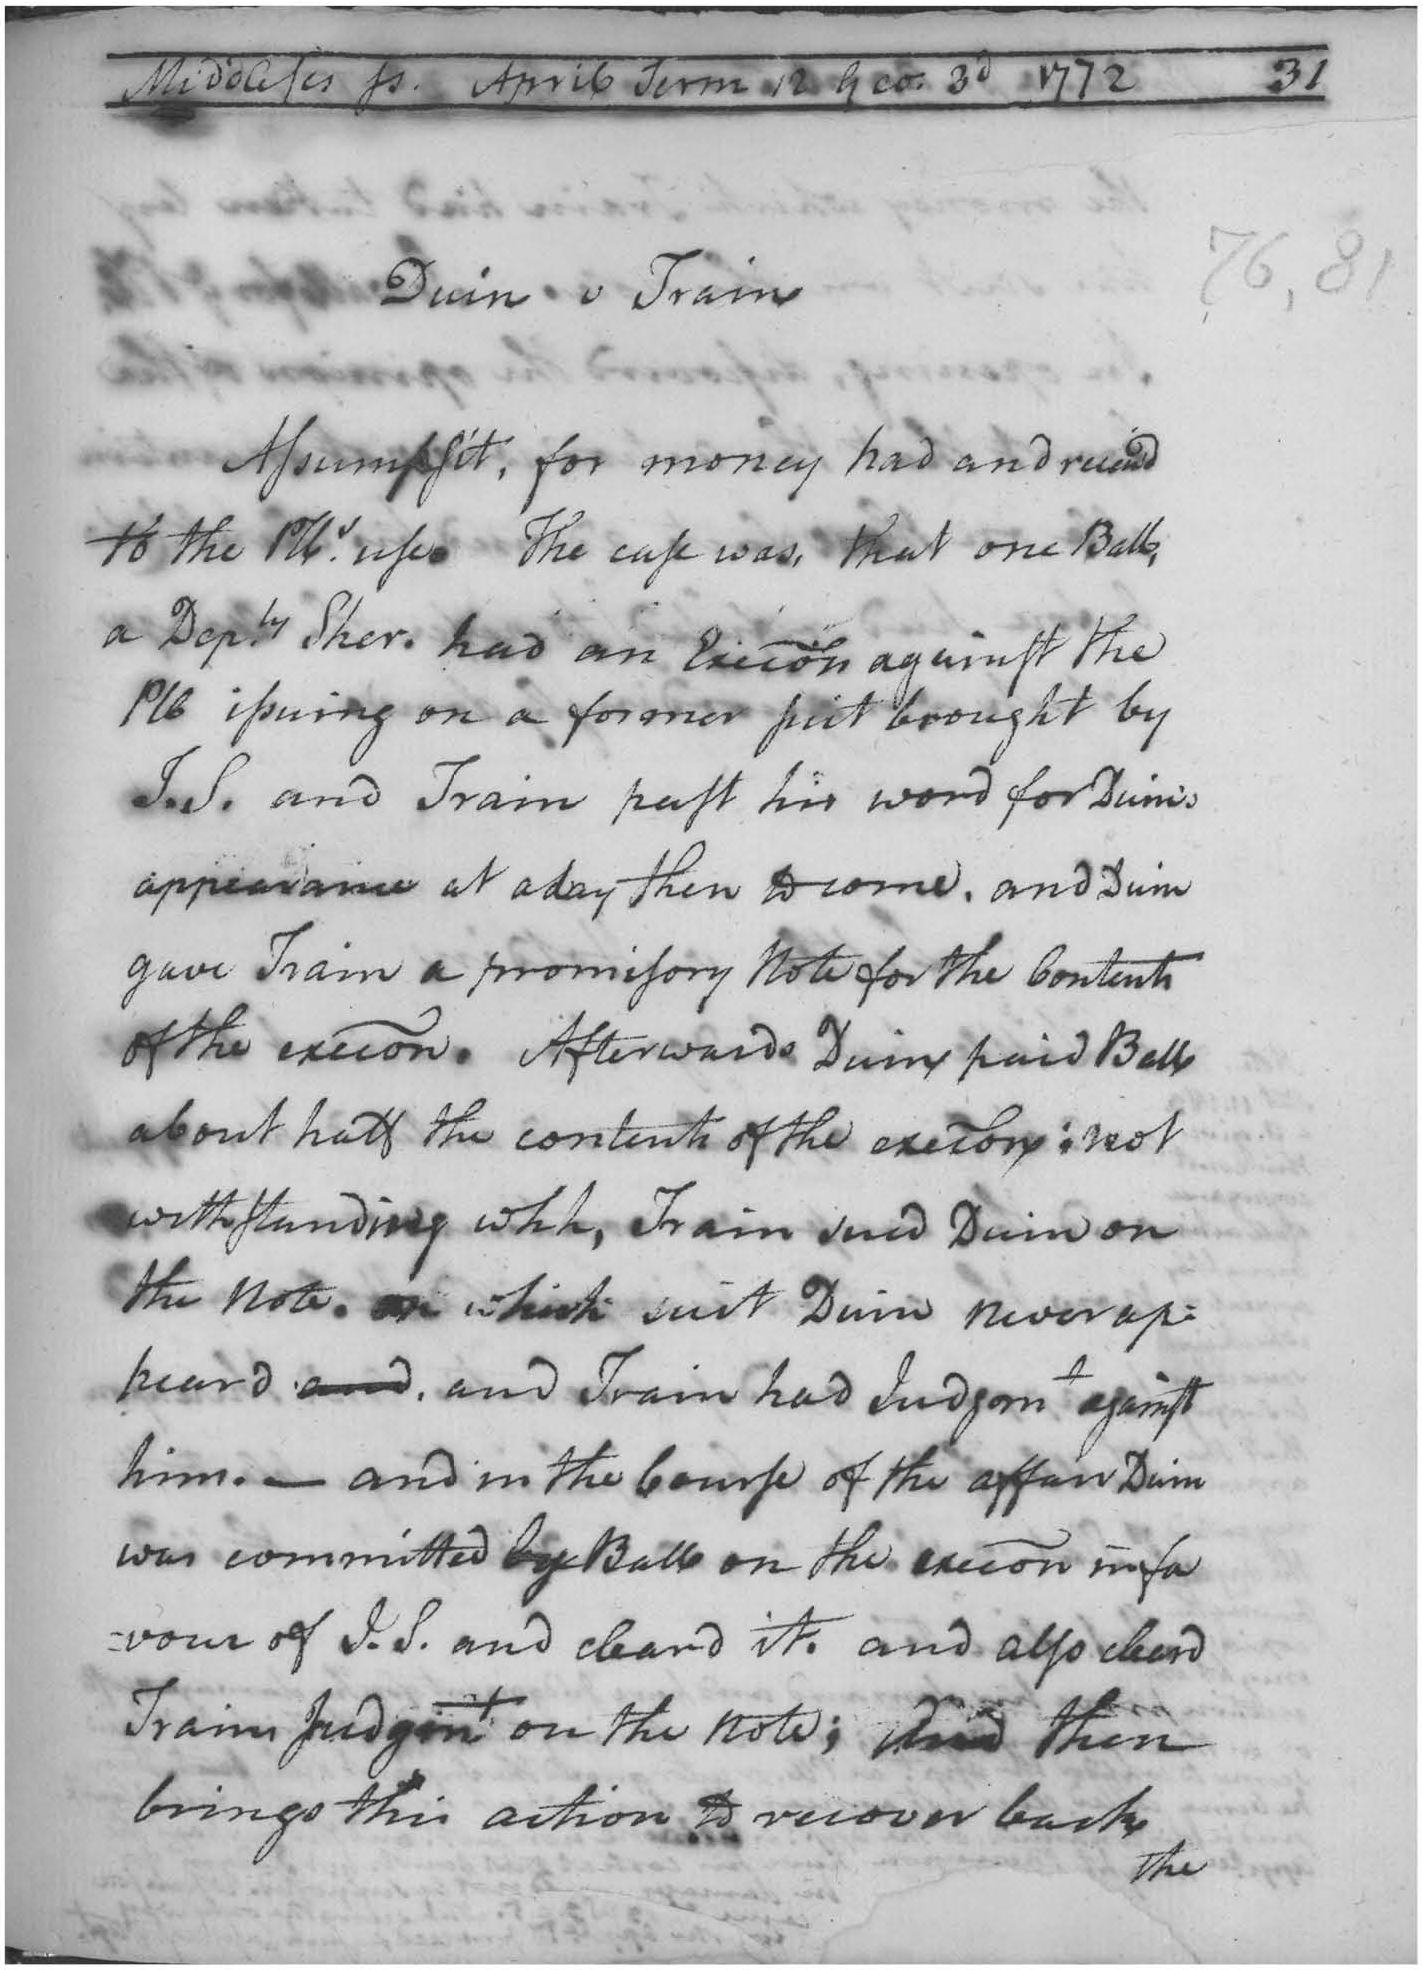 Middlesex ss. April Term 12 Geo. 3d 1772 31
76, 81
Duin v Train
Assumpsit, for money had and receivd
to the Plfs. use. The case was, that one Ball,
a Depty Sher. had an Execõn against the
Plf issuing on a former suit brought by
J.S. and Train past his word for Duins
appearance at a day then to come. and Duin
gave Train a promissory Note for the Contents
of the execõn. Afterwards Duin paid Ball
about half the contents of the execõn: not
withstanding whh, Train sued Duin on
the Note. on which suit Duin never ap:
peard and. and Train had Judgmt against
him. — and in the Course of the affair Duin
was committed by Ball on the execõn in fa
=vour of J.S. and cleard it. and also cleard
Trains Judgmt on the Note; And then
brings this action to recover back
the